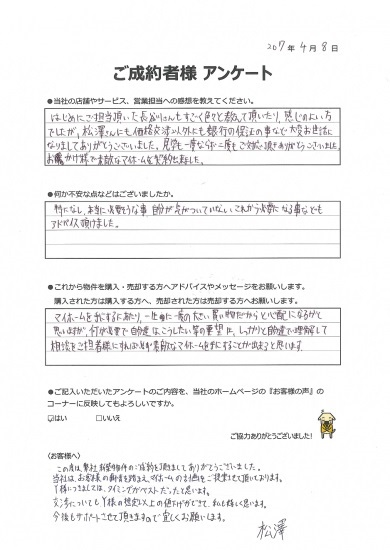 2017年 4月 8日
ご成約者様 アンケート
●当社の店舗やサービス、営業担当への感想を教えてください。
はじめにご担当頂いた長谷川さんもすごく色々と教えて頂いたり、感じのよい方
でしたが、松澤さんにも価格交渉以外にも銀行の保証の事など大変お世話に
なりましてありがとうございました。尾登一度ならず二度もご対応頂きありがとうございました。
お蔭かげ様で素敵なマイホームを契約出来ました。
●何か不安な点などはございましたか。
特になし、本当に必要そうな事、自分が気がついていない、これから必要になる事なども
アドバイス頂けました。
●これから物件を購入・売却する方へアドバイスやメッセージをお願いします。
購入された方は購入する方へ、売却された方は売却する方へお願いします。
マイホームを手にするにあたり、一生に一度の大きい買い物だからと心配になるかと
思いますが、何が必要で自分達は、こうしたい等の要望は、しっかりと自分達で理解して
相談をご担当者様にすれば必ず素敵なマイホームを手にすることが出来ると思います。
●ご記入いただいたアンケートのご内容を、当社のホームページの『お客様の声』の
コーナーに反映してもよろしいですか。
☑はい □いいえ
ご協力ありがとうございました!
(お客様へ)
この度は、弊社 新築物件のご成約を頂きましてありがとうございました。
当社は、お客様の都合を踏まえ、マイホームの計画をご提案させて頂いております。
Y様につきましては、タイミングがベストだったと思います。
交渉についてもY様の想定以上の値下げができて、私も嬉しく思います。
今後もサポートさせて頂きますので宜しくお願いします。
松澤